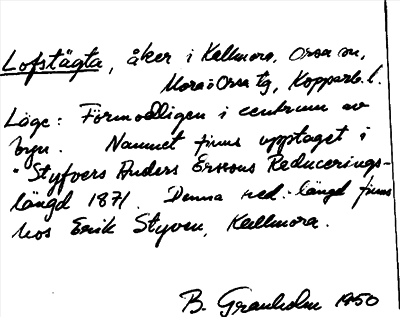 Lofstägta, åker i Kallmora, Orsa sn,
Mora o Orsa tg, Kopparb. l.
Läge: Förmodligen i centrum av
byn. Namnet finns upptaget i
"Styfvers Anders Erssons Reducerings-
längd 1871. Denna red.-längd finns
hos Erik Styven, Kallmora.
B. Granholm 1950